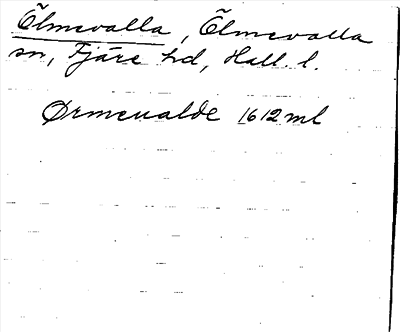 Ölmevalla, Ölmevalla
sn, Fjäre hd, Hall. l.
Ørmeualde 1612 ml